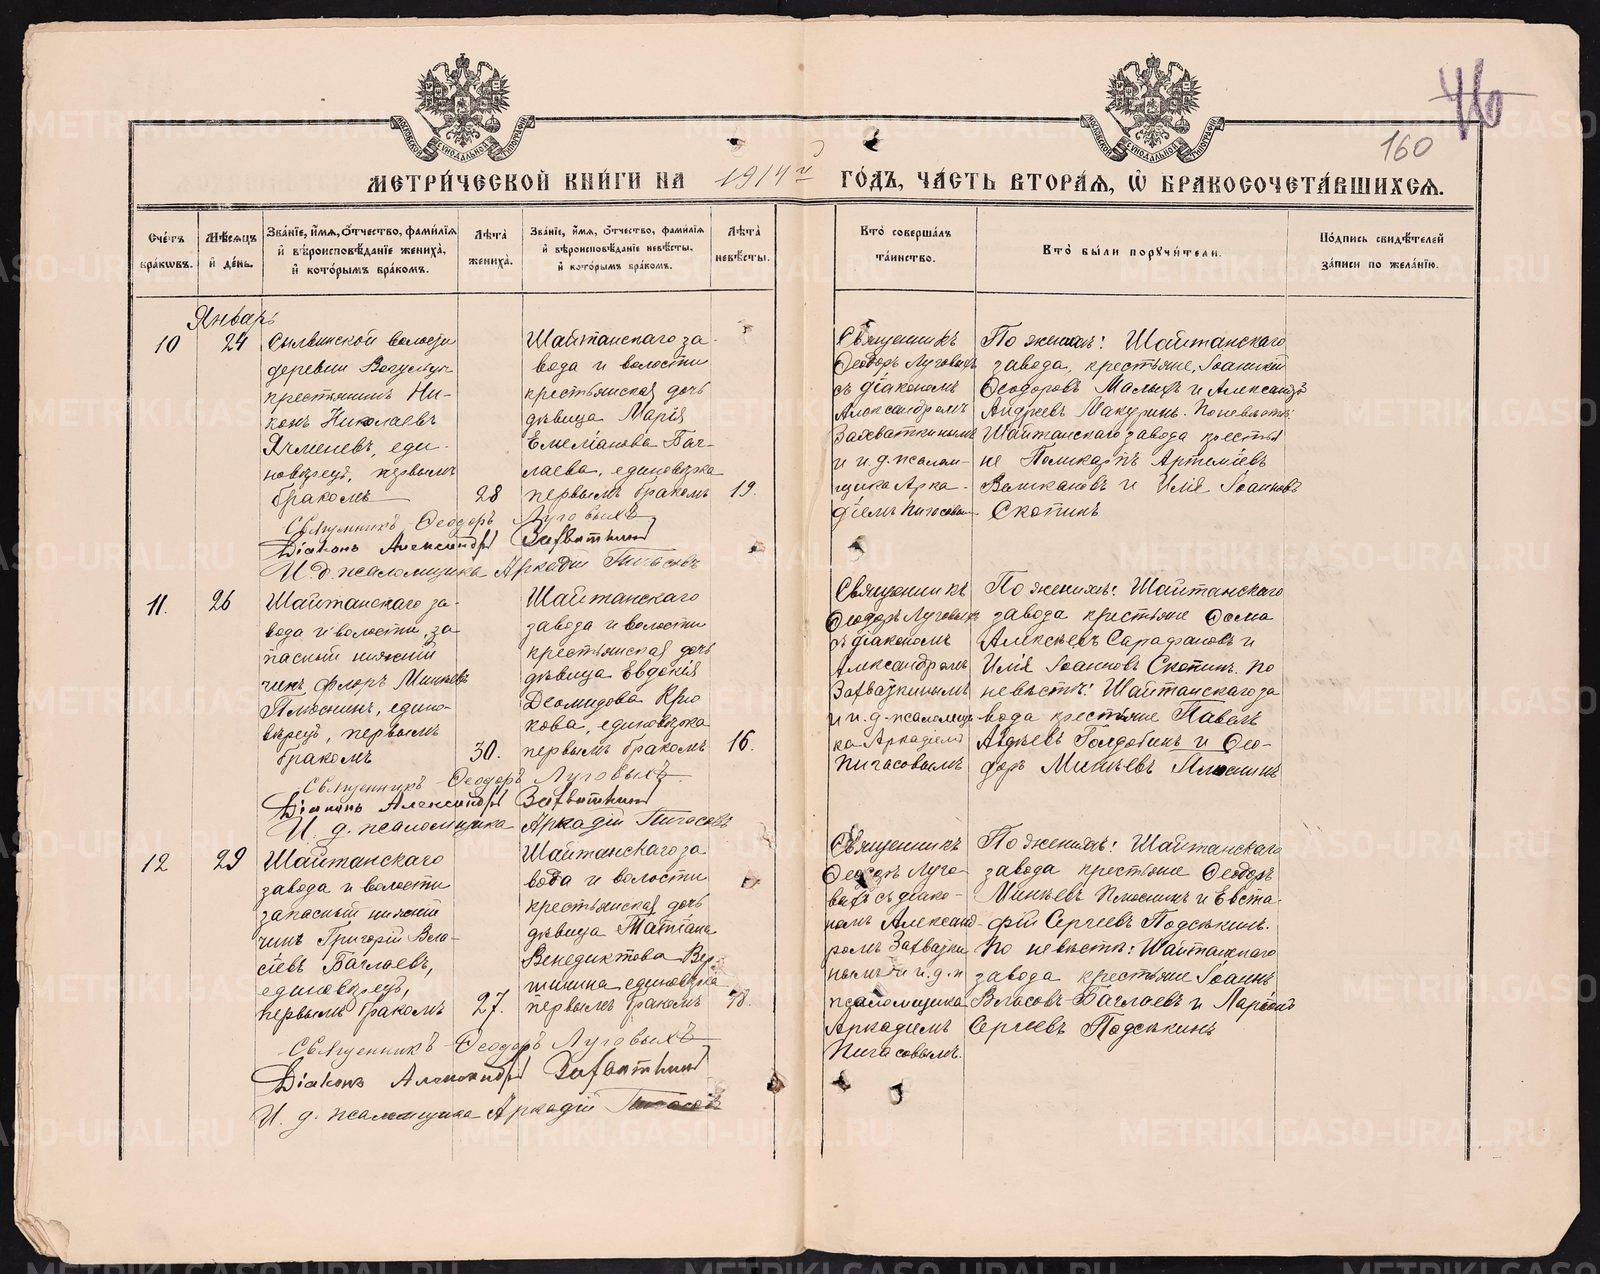 46
160
МЕТРИ́ЧЕСКОЙ КНИ́ГИ НА 1914й ГО́ДЪ, ЧА́СТЬ ВТОРА́Я, Ѡ БРАКОСОЧЕТА́ВШИХСЯ.
Сче́тъ бра́кѡвъ.
Мѣ́сяцъ и де́нь.
Зва́нїе, и́мя, о́тчество, фами́лїя и вѣроисповѣ́данїе жениха̀, и кото́рымъ бра́комъ.
Лѣта̀ жениха̀.
Зва́нїе, и́мя, о́тчество, фами́лїя и вѣроисповѣ́данїе невѣ́сты, и кото́рымъ бра́комъ.
Лѣта̀ невѣ́сты.
Кто̀ соверша́лъ та́инство.
Кто̀ бы́ли порꙋчи́тели.
По́дпись свидѣ́телей за́писи по жела́нїю.
Январь
10
24
Сылвинской волости
деревни
крестьянинъ Ни-
конъ Николаевъ
Ячменевъ, еди-
новѣрецъ, первымъ
бракомъ
28
Шайтанскаго за-
вода и волости
крестьянская дочь
дѣвица Марія
Емеліанова Баг-
лаева, единовѣрка
первымъ бракомъ
19.
Священникъ
Ѳеодоръ Луговыхъ
съ діакономъ
Александромъ
Захваткинымъ
и и. д. псалом-
щика Арка-
діемъ Пигасовым
По женихѣ: Шайтанскаго
завода, крестьяне, Іоанникій
Ѳеодоровъ Малыхъ и Александръ
Андреевъ Макуринъ. По невѣстѣ:
Шайтанскаго завода крестья
не Поликарпъ Артеміевъ
Великановъ и Илія Іоанновъ
Скопинъ
Священникъ Ѳеодоръ Луговыхъ
Діаконъ Александръ Захваткинъ
И. д. псаломщика Аркадій Пигасовъ
11.
26
Шайтанскаго за-
вода и волости, за
пасный нижній
чинъ Флоръ Минѣевъ
Плюснинъ, едино-
вѣрецъ, первымъ
бракомъ
30.
Шайтанскаго
завода и волости
крестьянская дочь
дѣвица Евдокія
Деомидова Крю
кова, единовѣрка
первымъ бракомъ
16.
Священникъ
Ѳеодоръ Луговыхъ
съ діакономъ
Александромъ
Захваткинымъ
и и. д. псаломщи
ка Аркадіемъ
Пигасовымъ
По женихѣ: Шайтанскаго
завода крестьяне Ѳома
Алексѣевъ Сарафановъ и
Илія Іоанновъ Скопинъ. По
невѣстѣ: Шайтанскаго за
вода крестьяне Павелъ
Авдѣевъ Голдобинъ и Ѳео-
доръ Минѣевъ Плюснинъ
Священникъ Ѳеодоръ Луговыхъ
Діаконъ Александръ Захваткинъ
И. д. псаломщика Аркадій Пигасовъ
12
29
Шайтанскаго
завода и волости
запасный нижній
чинъ Григорій Вла-
сіевъ Баглаевъ,
единовѣрецъ,
первымъ бракомъ
27.
Шайтанскаго за-
вода и волости
крестьянская дочь
дѣвица Татіана
Венедиктова Вер-
шинина единовѣрка
первымъ бракомъ
18.
Священникъ
Ѳеодоръ Луго-
выхъ съ діако-
номъ Александ
ромъ Захватки
нымъ и и. д.
псаломщика
Аркадіемъ
Пигасовымъ.
По женихѣ: Шайтанскаго
завода крестьяне Ѳеодоръ
Минѣевъ Плюснинъ и Евста-
фій Сергѣевъ Подсѣкинъ.
По невѣстѣ: Шайтанскаго
завода крестьяне Іоаннъ
Власовъ Баглаевъ и Ларіонъ
Сергѣевъ Подсѣкинъ
Священникъ Ѳеодоръ Луговыхъ
Діаконъ Александръ Захваткинъ
И. д. псаломщика Аркадій Пигасовъ